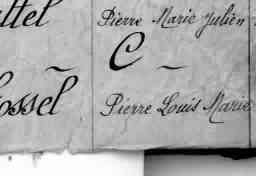 ttel Pierre Marie Julien
C
ossel Pierre Louis Marie